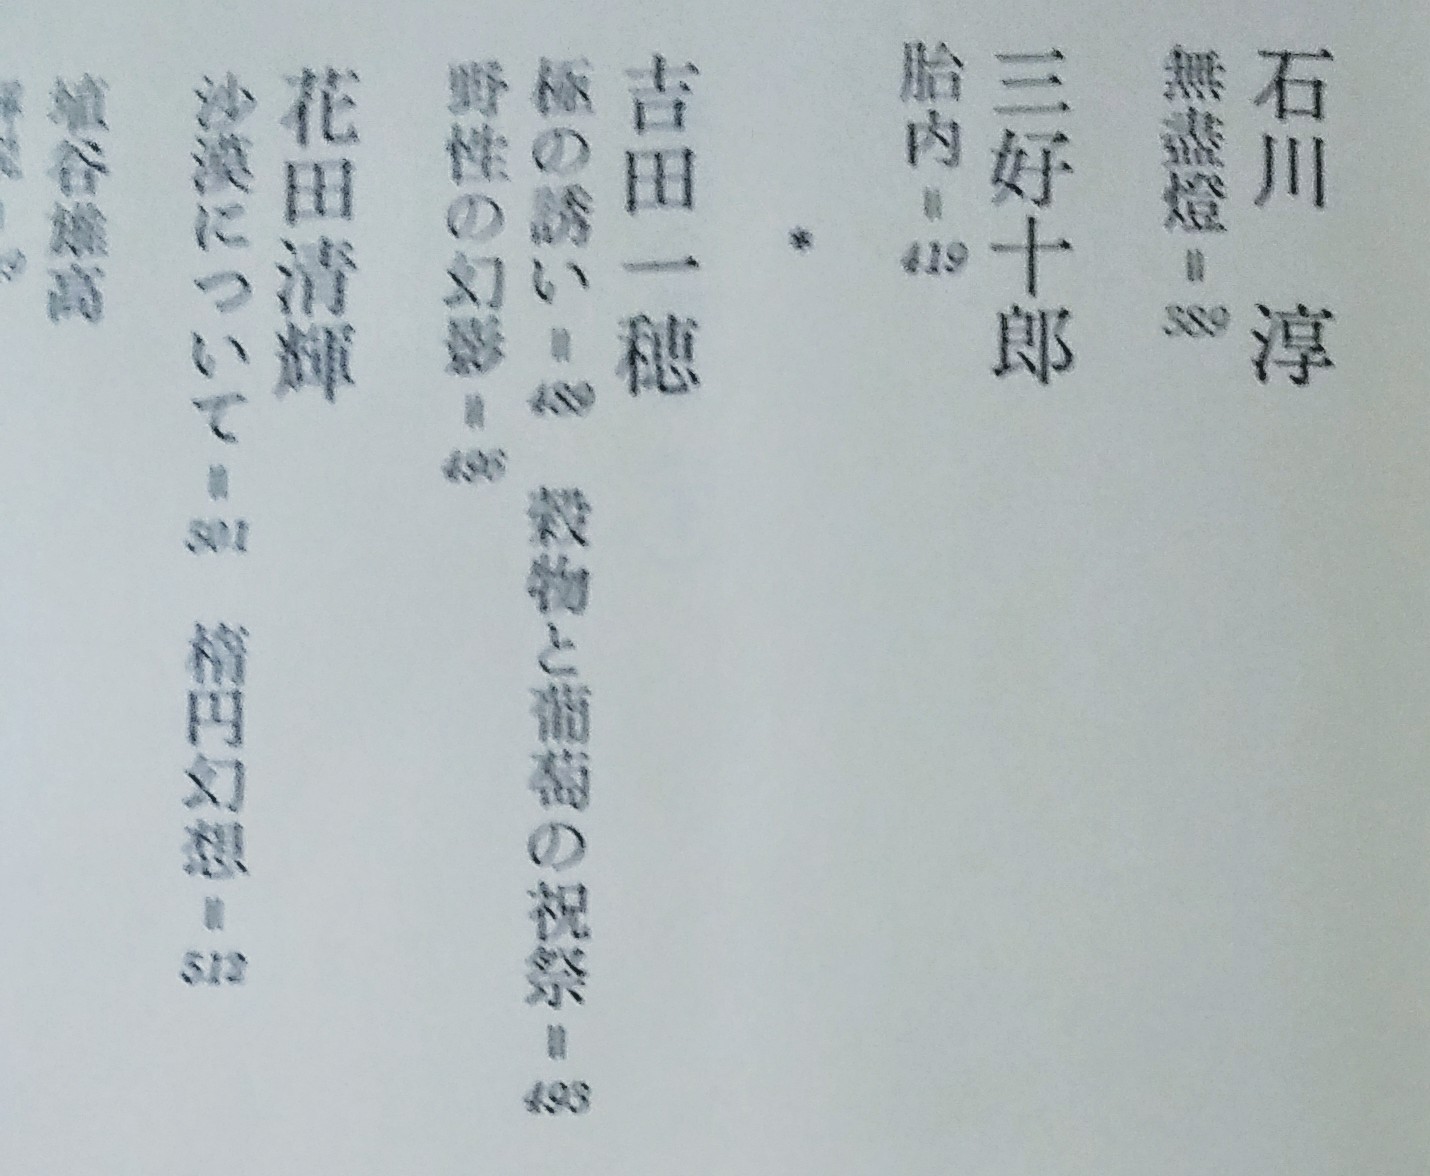 石川 淳
無盡燈=389
三好十郎
胎内=419
*
吉田一穂
極の誘い=489 穀物と葡萄の祝祭=493
野性の幻影=496
花田清輝
沙漠について=501 楕円幻想=512
埴谷雄高